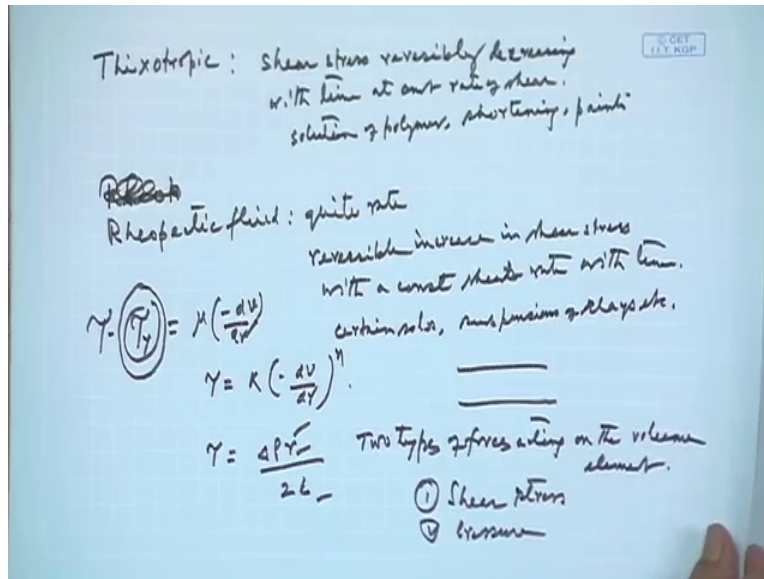 © CET
I.I.T. KGP
Thixotropic : Shear stress reversibly decreasing
with time at const rate of shear.
solution of polymer, shortening, paints
Rheopectic fluid : quite rate
reversible increase in shear stress
with a const shear rate with time.
certain sols, suspension of clays etc.
τ - τy = μ(-dv/dr)
τ = K(-dv/dr)^n.
τ = ΔPr/2L
Two types of forces acting on the volume
element.
① Shear stress
② Pressure